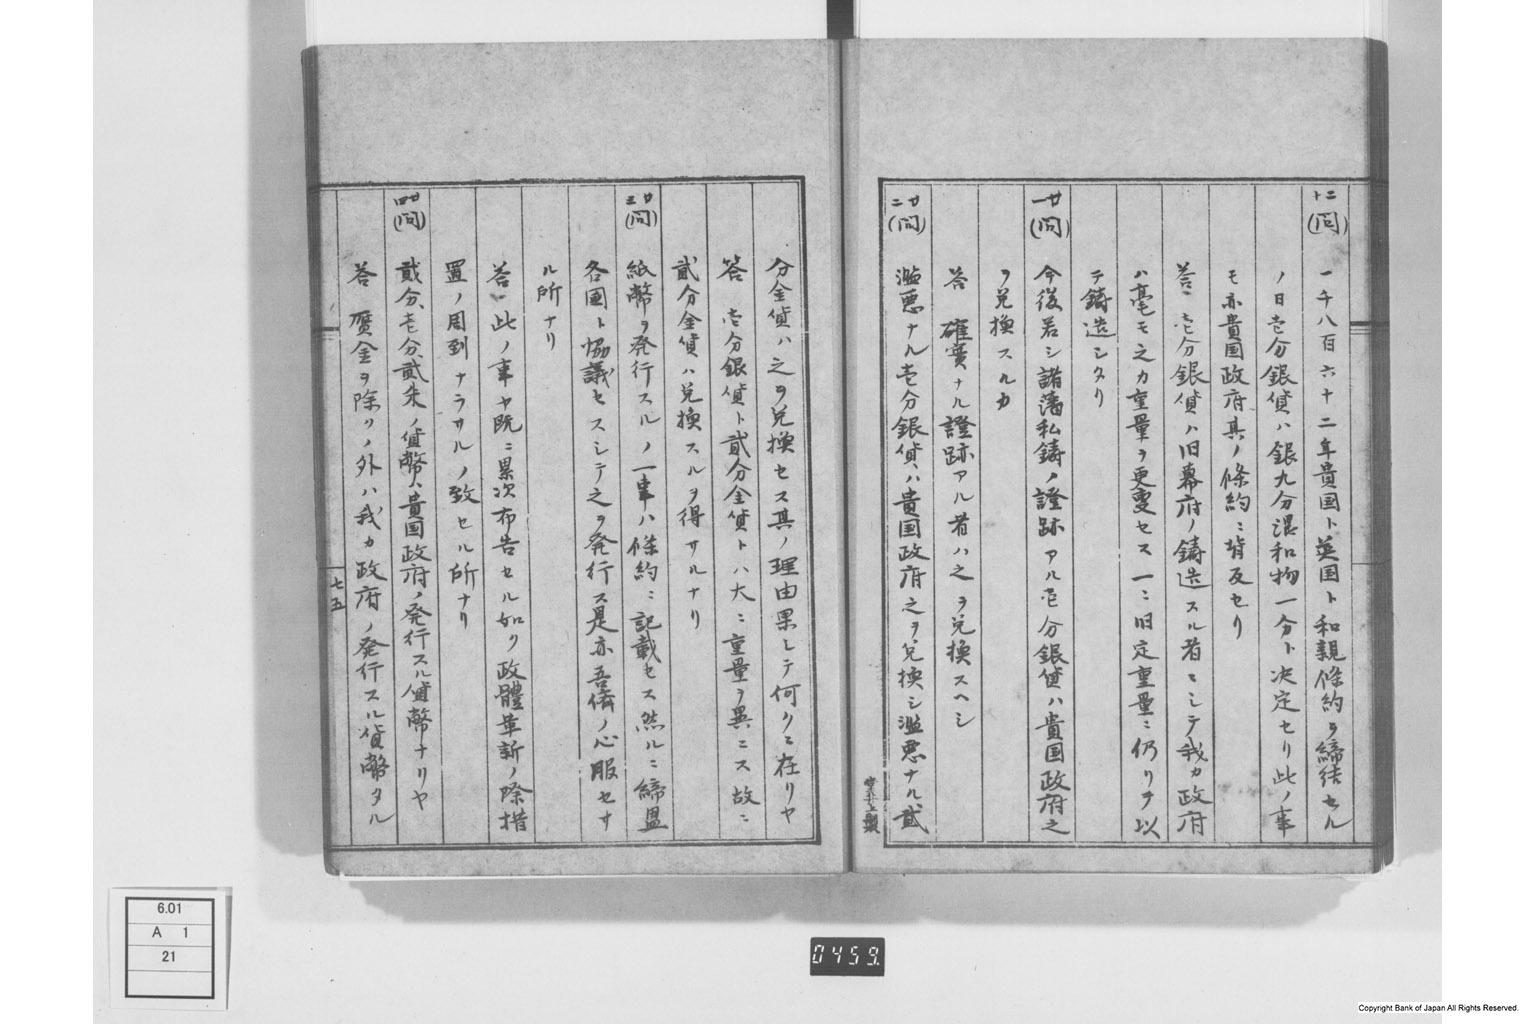 二十(問)
一千八百六十二年貴国ト英国ト和親條約ヲ締結セル
ノ日壱分銀貨ハ銀九分混和物一分ト決定セリ此ノ事
モ亦貴国政府其ノ條約ニ背反セリ
答 壱分銀貨ハ旧幕府ノ鋳造スル者ニシテ我カ政府
ハ毫モ之カ重量ヲ更変セス一ニ旧定重量ニ仍リテ以
テ鋳造シタリ
廿一(問)
今後若シ諸藩私鋳ノ證跡アル壱分銀貨ハ貴国政府之
ヲ兌換スルカ
答 確實ナル證跡アル者ハ之ヲ兌換スヘシ
廿二(問)
濫悪ナル壱分銀貨ハ貴国政府之ヲ兌換シ濫悪ナル貳
分金貨ハ之ヲ兌換セス其ノ理由果シテ何クニ在リヤ
答 壱分銀貨ト貳分金貨トハ大ニ重量ヲ異ニス故ニ
貳分金貨ハ兌換スルヲ得サルナリ
廿三(問)
紙幣ヲ発行スルノ一事ハ條約ニ記載セス然ルニ締盟
各国ト協議セスシテ之ヲ発行ス是亦吾儕ノ心服セサ
ル所ナリ
答 此ノ事ヤ既ニ累次布告セル如ク政體革新ノ際措
置ノ周到ナラサルノ致セル所ナリ
廿四(問)
貳分、壱分、貳朱ノ貨幣ハ貴国政府ノ発行スル貨幣ナリヤ
答 贋金ヲ除クノ外ハ我カ政府ノ発行スル貨幣タル
七五
6.01
A 1
21
0459
Copyright Bank of Japan All Rights Reserved.